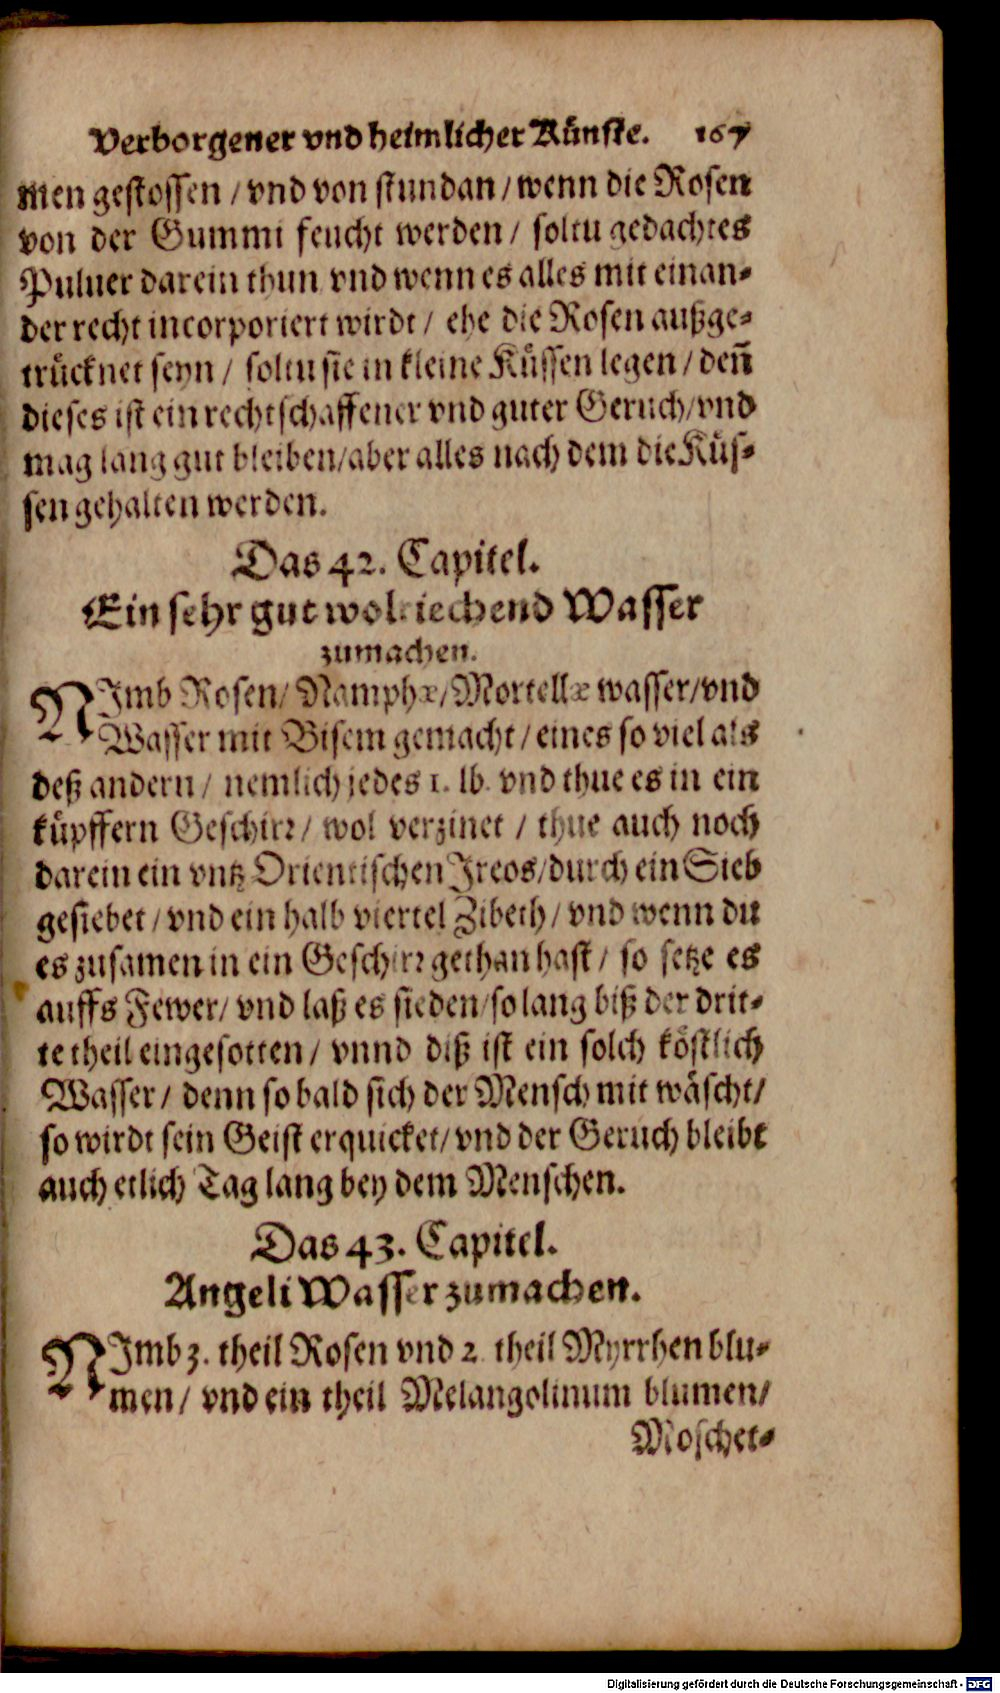 Verborgener vnd heimlicher Künste. 167
men gestossen / vnd von stundan / wenn die Rosen
von der Gummi feucht werden / soltu gedachtes
Puluer darein thun vnd wenn es alles mit einan-
der recht incorporiert wirdt / ehe die Rosen außge-
trücknet seyn / soltu sie in kleine Küssen legen / deñ
dieses ist ein rechtschaffener vnd guter Geruch / vnd
mag lang gut bleiben / aber alles nach dem die Küs-
sen gehalten werden.
Das 42. Capitel.
Ein sehr gut wolriechend Wasser
zumachen.
NImb Rosen / Namphæ / Mortellæ wasser / vnd
Wasser mit Bisem gemacht / eines so viel als
deß andern / nemlich jedes 1. lb. vnd thue es in ein
küpffern Geschirr / wol verzinet / thue auch noch
darein ein vntz Orientischen Jreos / durch ein Sieb
gesiebet / vnd ein halb viertel Zibeth / vnd wenn du
es zusamen in ein Geschirr gethan hast / so setze es
auffs Fewer / vnd laß es sieden / so lang biß der drit-
te theil eingesotten / vnnd diß ist ein solch köstlich
Wasser / denn so bald sich der Mensch mit wäscht /
so wirdt sein Geist erquicket / vnd der Geruch bleibt
auch etlich Tag lang bey dem Menschen.
Das 43. Capitel.
Angeli Wasser zumachen.
NImb 3. theil Rosen vnd 2. theil Myrrhen blu-
men / vnd ein theil Melangolinum blumen /
Moschet-
Digitalisierung gefördert durch die Deutsche Forschungsgemeinschaft - DFG